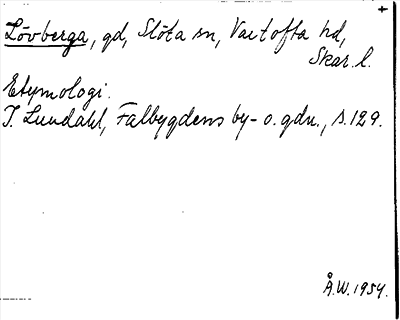 Lövberga, gd, Slöta sn, Vartofta hd,
Skar. l.
Etymologi.
I. Lundahl, Falbygdens by- o. gdn., s. 129.
Å.W. 1954.